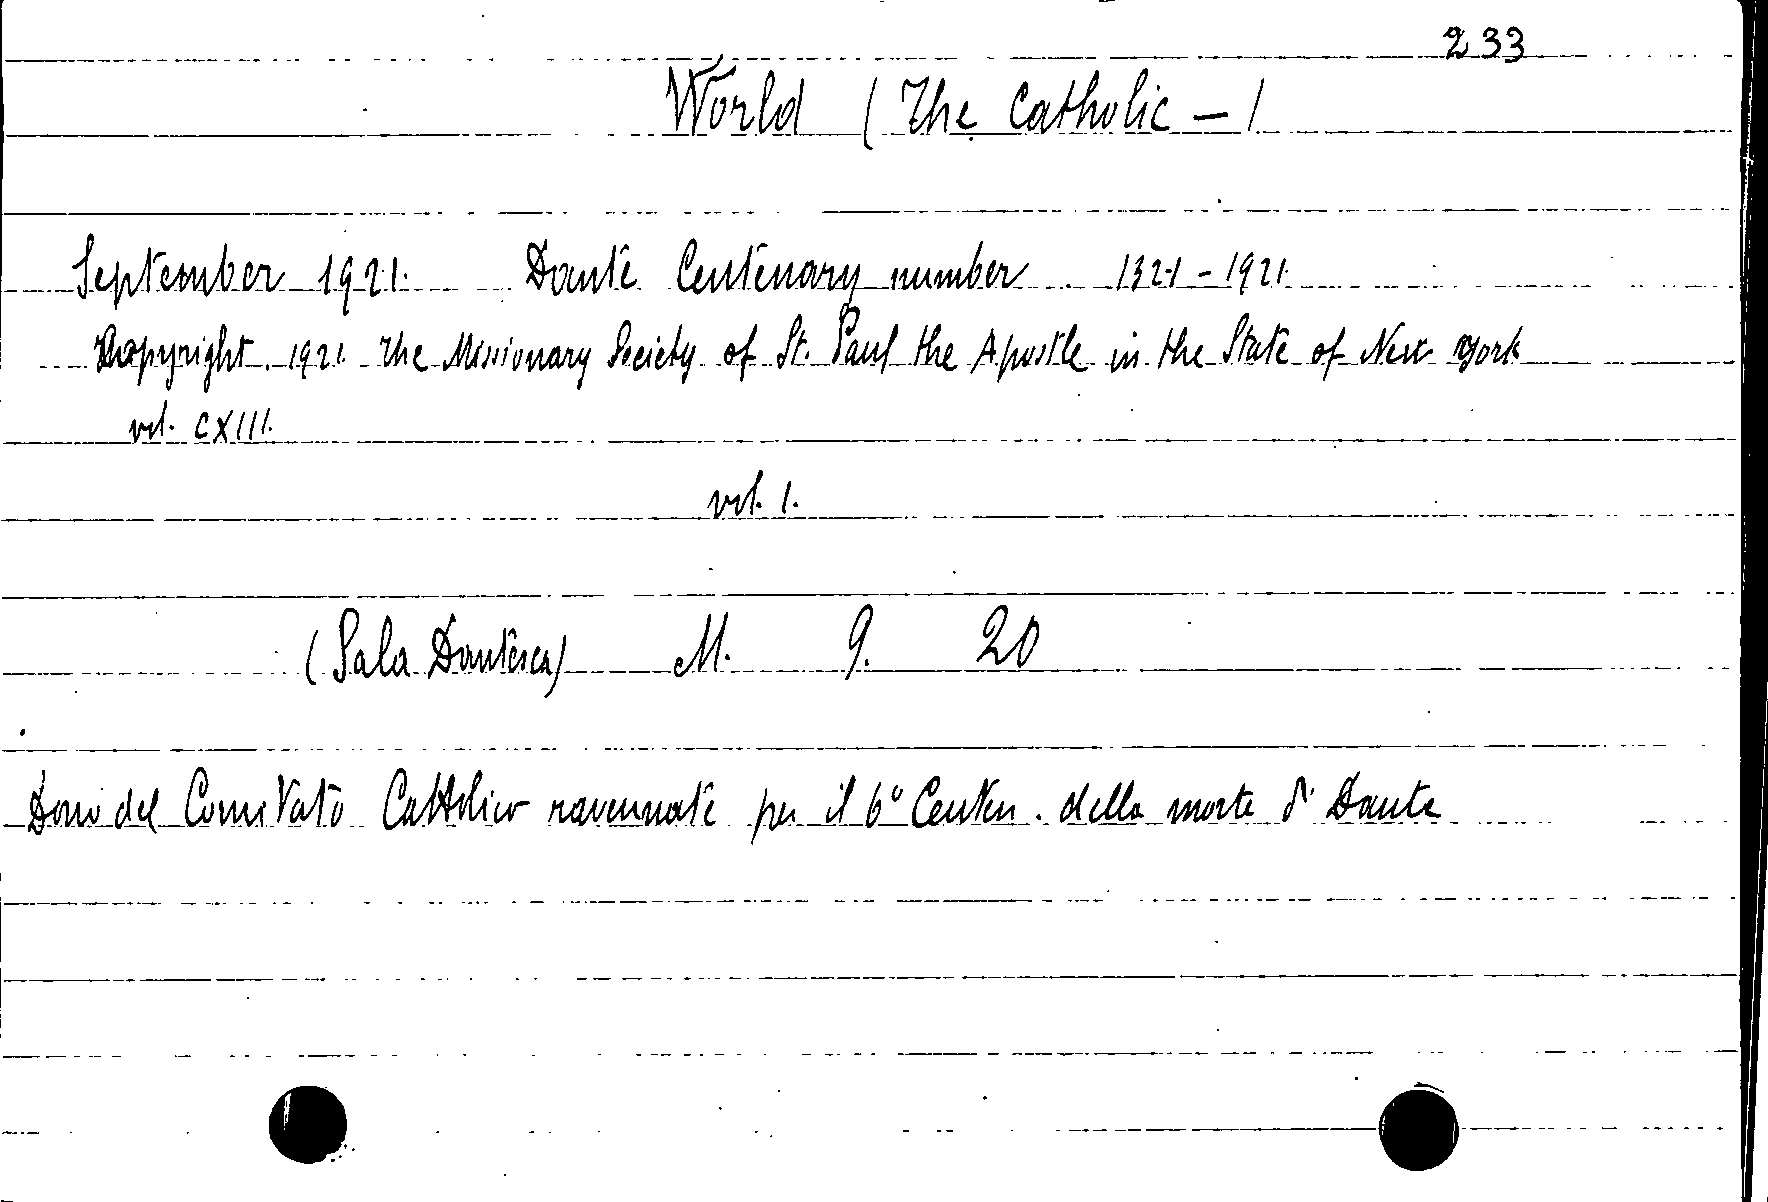 233
World (The Catholic — )
September 1921. Dante Centenary number 1321 - 1921.
Copyright 1921. The Missionary Society of St. Paul the Apostle in the State of New York
vol. CXIII.
vol. 1.
(Sala Dantesca) M. 9. 20
Dono del Comitato Cattolico ravennate per il 6º Centen. della morte di Dante